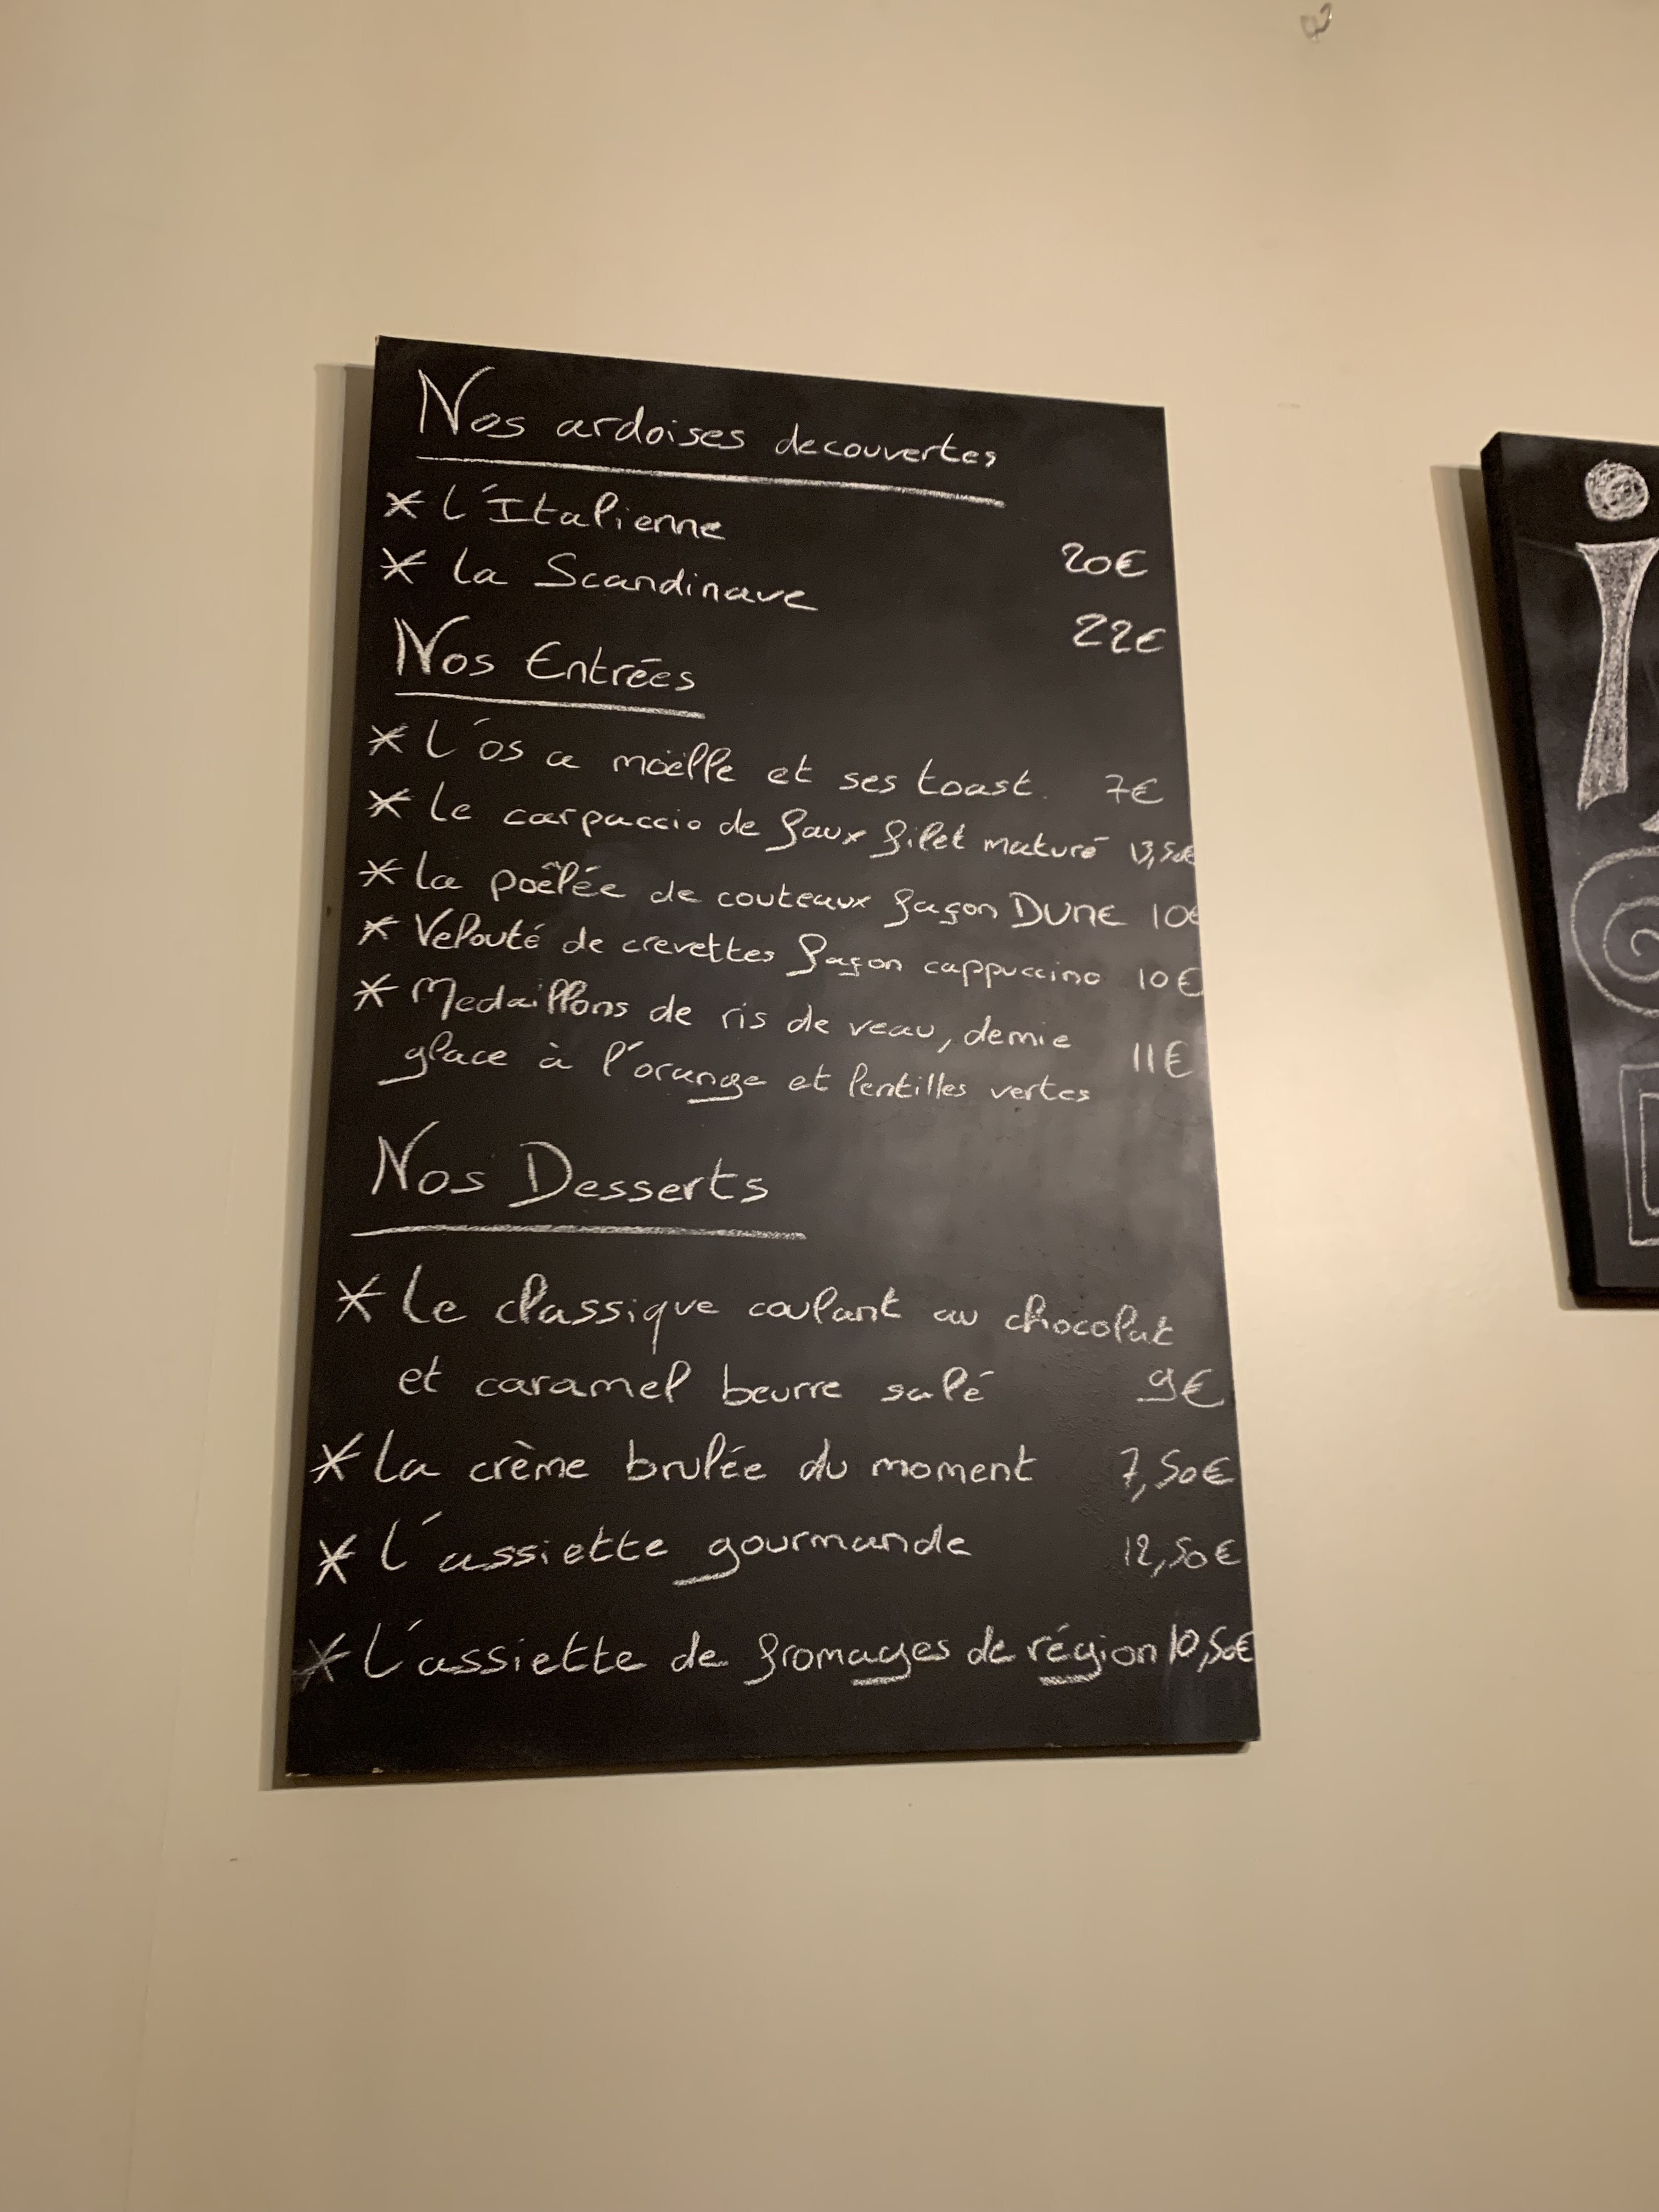 Nos ardoises decouvertes
* L'Italienne 20€
* La Scandinave 22€
Nos Entrées
* L'os a moëlle et ses toast. 7€
* Le carpaccio de faux filet maturé 13,50€
* La poêlée de couteaux façon DUNE 10€
* Velouté de crevettes façon cappuccino 10€
* Medaillons de ris de veau, demie
glace à l'orange et lentilles vertes 11€
Nos Desserts
* Le classique coulant au chocolat
et caramel beurre salé 9€
* La crème brulée du moment 7,50€
* L'assiette gourmande 12,50€
* L'assiette de fromages de région 10,50€